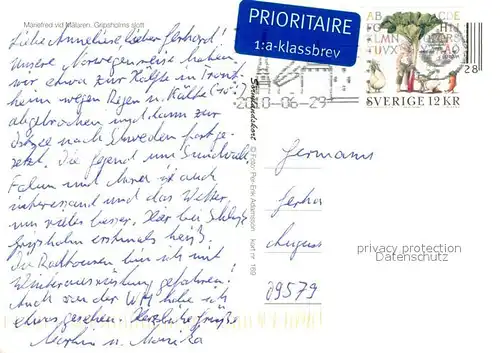 Mariefred vid Mälaren, Gripsholms slott
Liebe Anneliese, lieber Gerhard!
Unsere Norwegenreise haben
wir etwa zur Hälfte in Trond-
heim wegen Regen u. Kälte
abgebrochen und dann zur
Ostsee nach Schweden fortge-
setzt. Die Gegend um Sundsvall,
Falun und Mora ist auch
interessant und das Wetter
um vieles besser. Hier bei Schloß
Gripsholm erstmals heiß.
Die Radtouren bin ich mit
Winterausrüstung gefahren!
Auch von der WM habe ich
etwas gesehen. Herzliche Grüße
Martin u. Monika
Sörmlandskort
© Foto: Per-Erik Adamsson kort nr 169
PRIORITAIRE
1:a-klassbrev
2010-06-29
SVERIGE 12 KR
28
Hermanns
Gerha
August
09579
privacy protection
Datenschutz